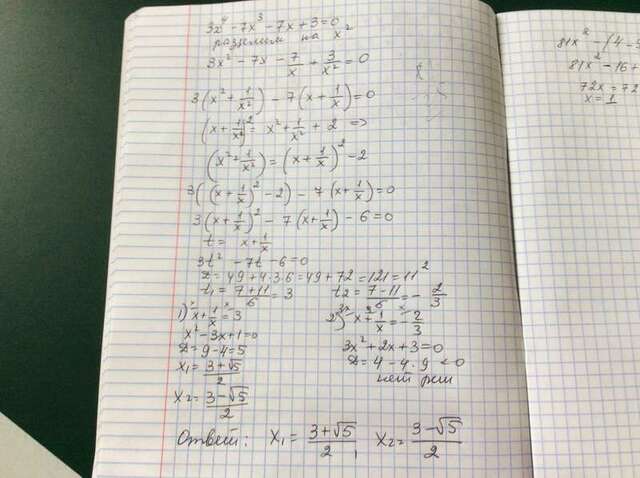 3x⁴ - 7x³ - 7x + 3 = 0
разделим на x²
3x² - 7x - 7/x + 3/x² = 0
3(x² + 1/x²) - 7(x + 1/x) = 0
(x + 1/x)² = x² + 1/x² + 2 =>
(x² + 1/x²) = (x + 1/x)² - 2
3((x + 1/x)² - 2) - 7(x + 1/x) = 0
3(x + 1/x)² - 7(x + 1/x) - 6 = 0
t = x + 1/x
3t² - 7t - 6 = 0
D = 49 + 4·3·6 = 49 + 72 = 121 = 11²
t₁ = (7+11)/6 = 3 t₂ = (7-11)/6 = - 2/3
1) x + 1/x = 3 2) x + 1/x = - 2/3
x² - 3x + 1 = 0 3x² + 2x + 3 = 0
D = 9 - 4 = 5 D = 4 - 4·9 < 0
x₁ = (3+√5)/2 нет реш
x₂ = (3-√5)/2
Ответ: x₁ = (3+√5)/2, x₂ = (3-√5)/2
81x² - (4 -
81x² - 16 +
72x = 72
x = 1